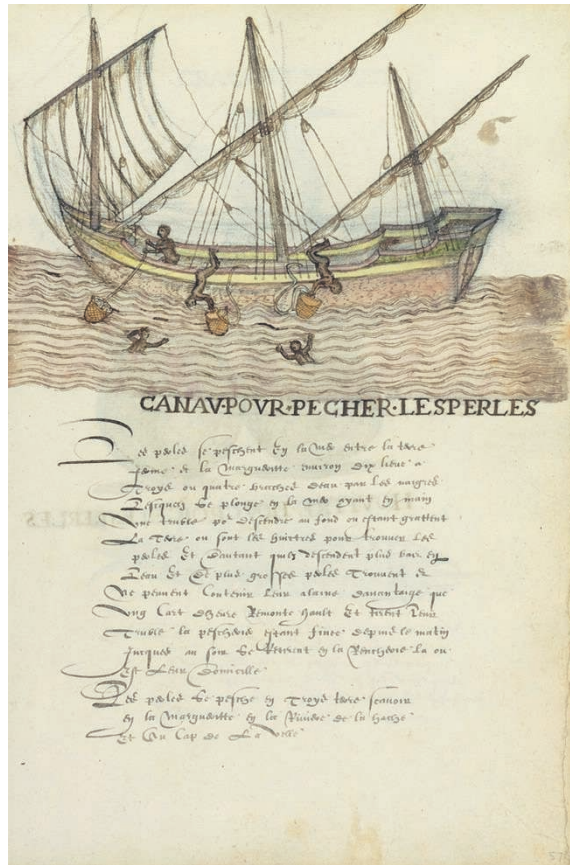 CANAV·POVR·PECHER·LESPERLES
Les perles se peschent En la Mer entre la terre
ferme et la Margueritte environ dix lieue a
Troys ou quatre brasses deau par les naigres
Lesquelz Se plonge en la mer ayant en main
une truble por descendre au fond ou estant grattent
La Terre ou sont les huictres pour trouver Les
perles Et dautant quilz descendent plus bas en
Leau Et De plus grosses perles Trouvent et
Ne peuvent Contenir Leur alaine davantaige que
ung Cart dheure Remonte hault Et tirent Leur
Truble la pescherie estant finee depuis le matin
Jucques au soir Se Retirent en la Rencherie La ou
Est Leur Domicille
Les perles Se pesche en Troys terre scavoir
en la Margueritte en la Riviere de la hache
Et Au Cap de La velle